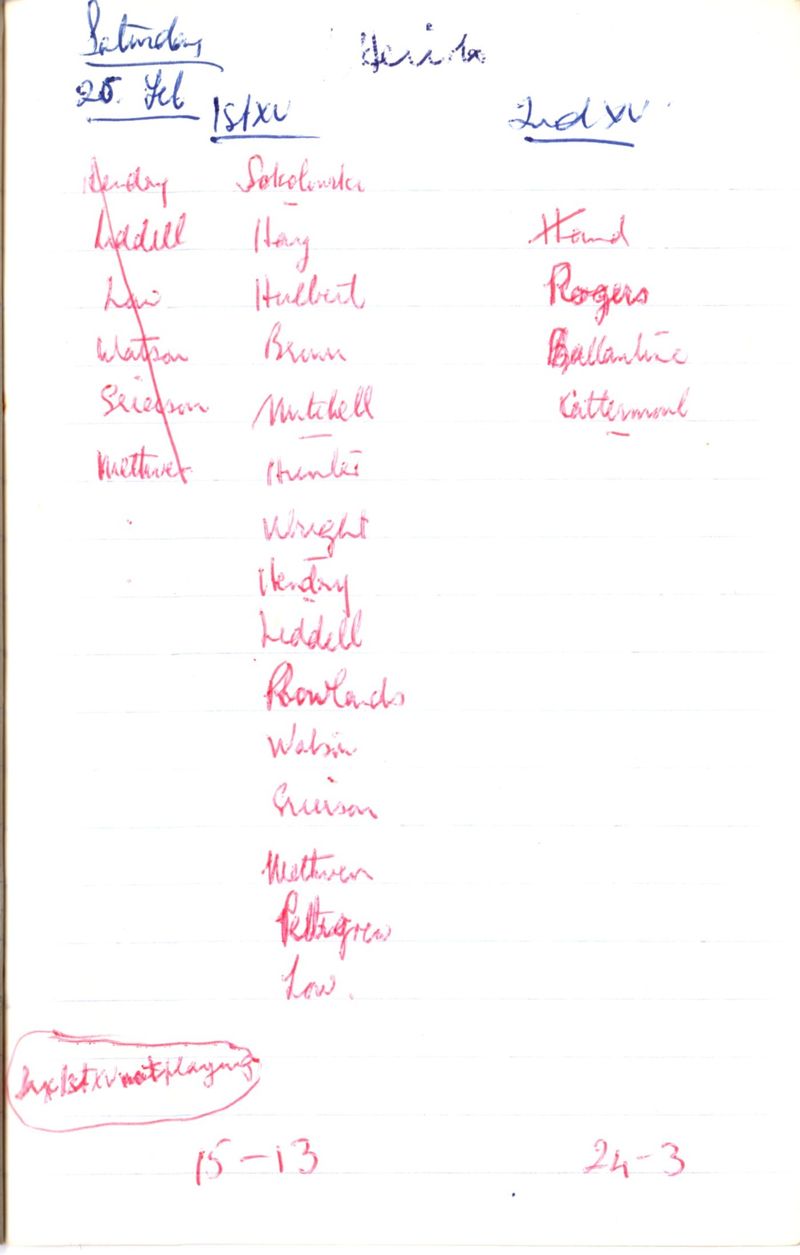 Saturday
25. Feb
1st XV
2nd XV
Hendry Sokolowski
Liddell Hay Hand
Low Hulbert Rogers
Watson Brown Ballantine
Grierson Mitchell Cattermoul
Methven Hunter
Wright
Hendry
Liddell
Rowlands
Watson
Grierson
Methven
Pettigrew
Low.
1st XV not playing
15-13 24-3